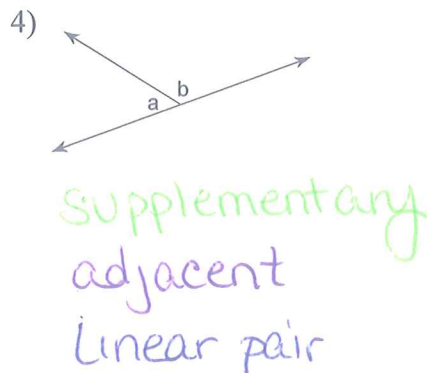 4)
b
a
supplementary
adjacent
linear pair